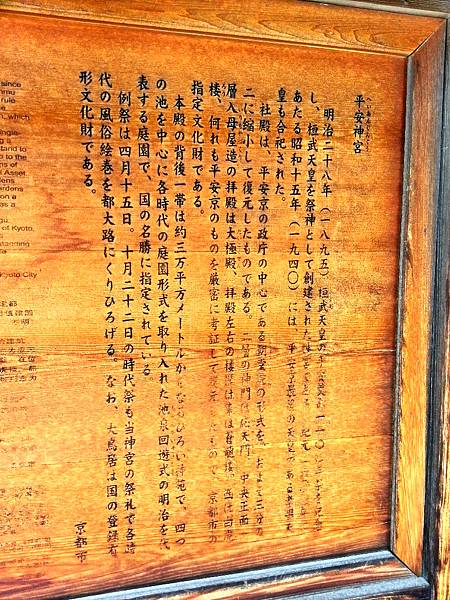 平安神宮
へいあんじんぐう
明治二十八年(一八九五)桓武天皇
し、桓武天皇を祭神として創建された
あたる昭和十五年(一九四〇)には、平安京最後の天皇である孝明天
皇も合祀された。
社殿は、平安京の政庁の中心である朝堂院の形式を、およそ三分の
二に縮小して復元したものである。二層の神門は応天門、中央正面
層入母屋造の拝殿は大極殿、拝殿左右の楼閣は東は蒼龍楼、西は白虎
楼、何れも平安京のものを厳密に考証して復元したもので、京都市の
指定文化財である。
本殿の背後一帯は約三万平方メートルからなるひろい神苑で、四つ
の池を中心に各時代の庭園形式を取り入れた池泉回遊式の明治を代
表する庭園で、国の名勝に指定されている。
例祭は四月十五日。十月二十二日の時代祭も当神宮の祭礼で各時
代の風俗絵巻を都大路にくりひろげる。なお、大鳥居は国の登録有
形文化財である。
京都市
since
rule
which
stand to
to the
ns of
Asset.
dens
ardens
on a
as a
of Kyoto,
Kyoto City